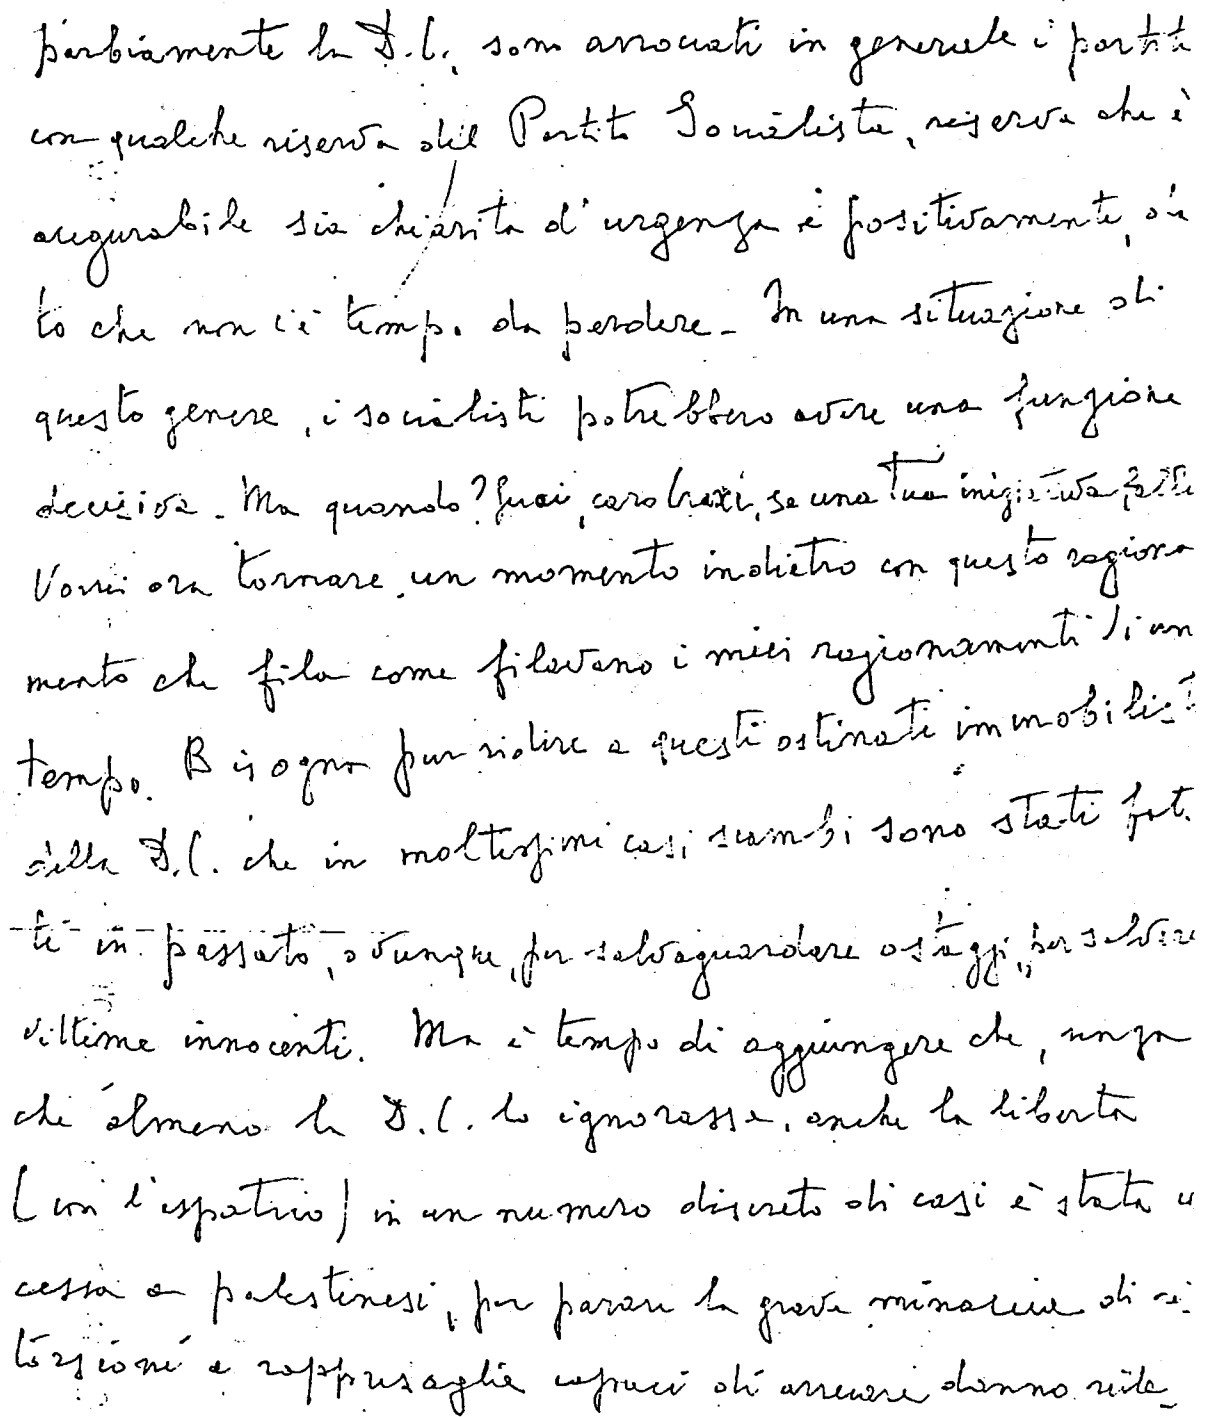 parbiamente la D.C., sono associati in generale i partiti
con qualche riserva del Partito Socialista, riserva che è
augurabile sia chiarita d'urgenza e positivamente, da
to che non c'è tempo da perdere. In una situazione di
questo genere, i socialisti potrebbero avere una funzione
decisiva. Ma quando? Guai, caro Craxi, se una Tua iniziativa
Vorrei ora tornare un momento indietro con questo ragiona
mento che fila come filavano i miei ragionamenti di un
tempo. Bisogna pur ridire a questi ostinati immobilisti
della D.C. che in moltissimi casi scambi sono stati fat
ti in passato, ovunque, per salvaguardare ostaggi, per salvare
vittime innocenti. Ma è tempo di aggiungere che, senza
che almeno la D.C. lo ignorasse, anche la libertà
(con l'espatrio) in un numero discreto di casi è stata con
cessa a palestinesi, per parare la grave minaccia di ri
torsioni e rappresaglie capaci di arrecare danno rile_